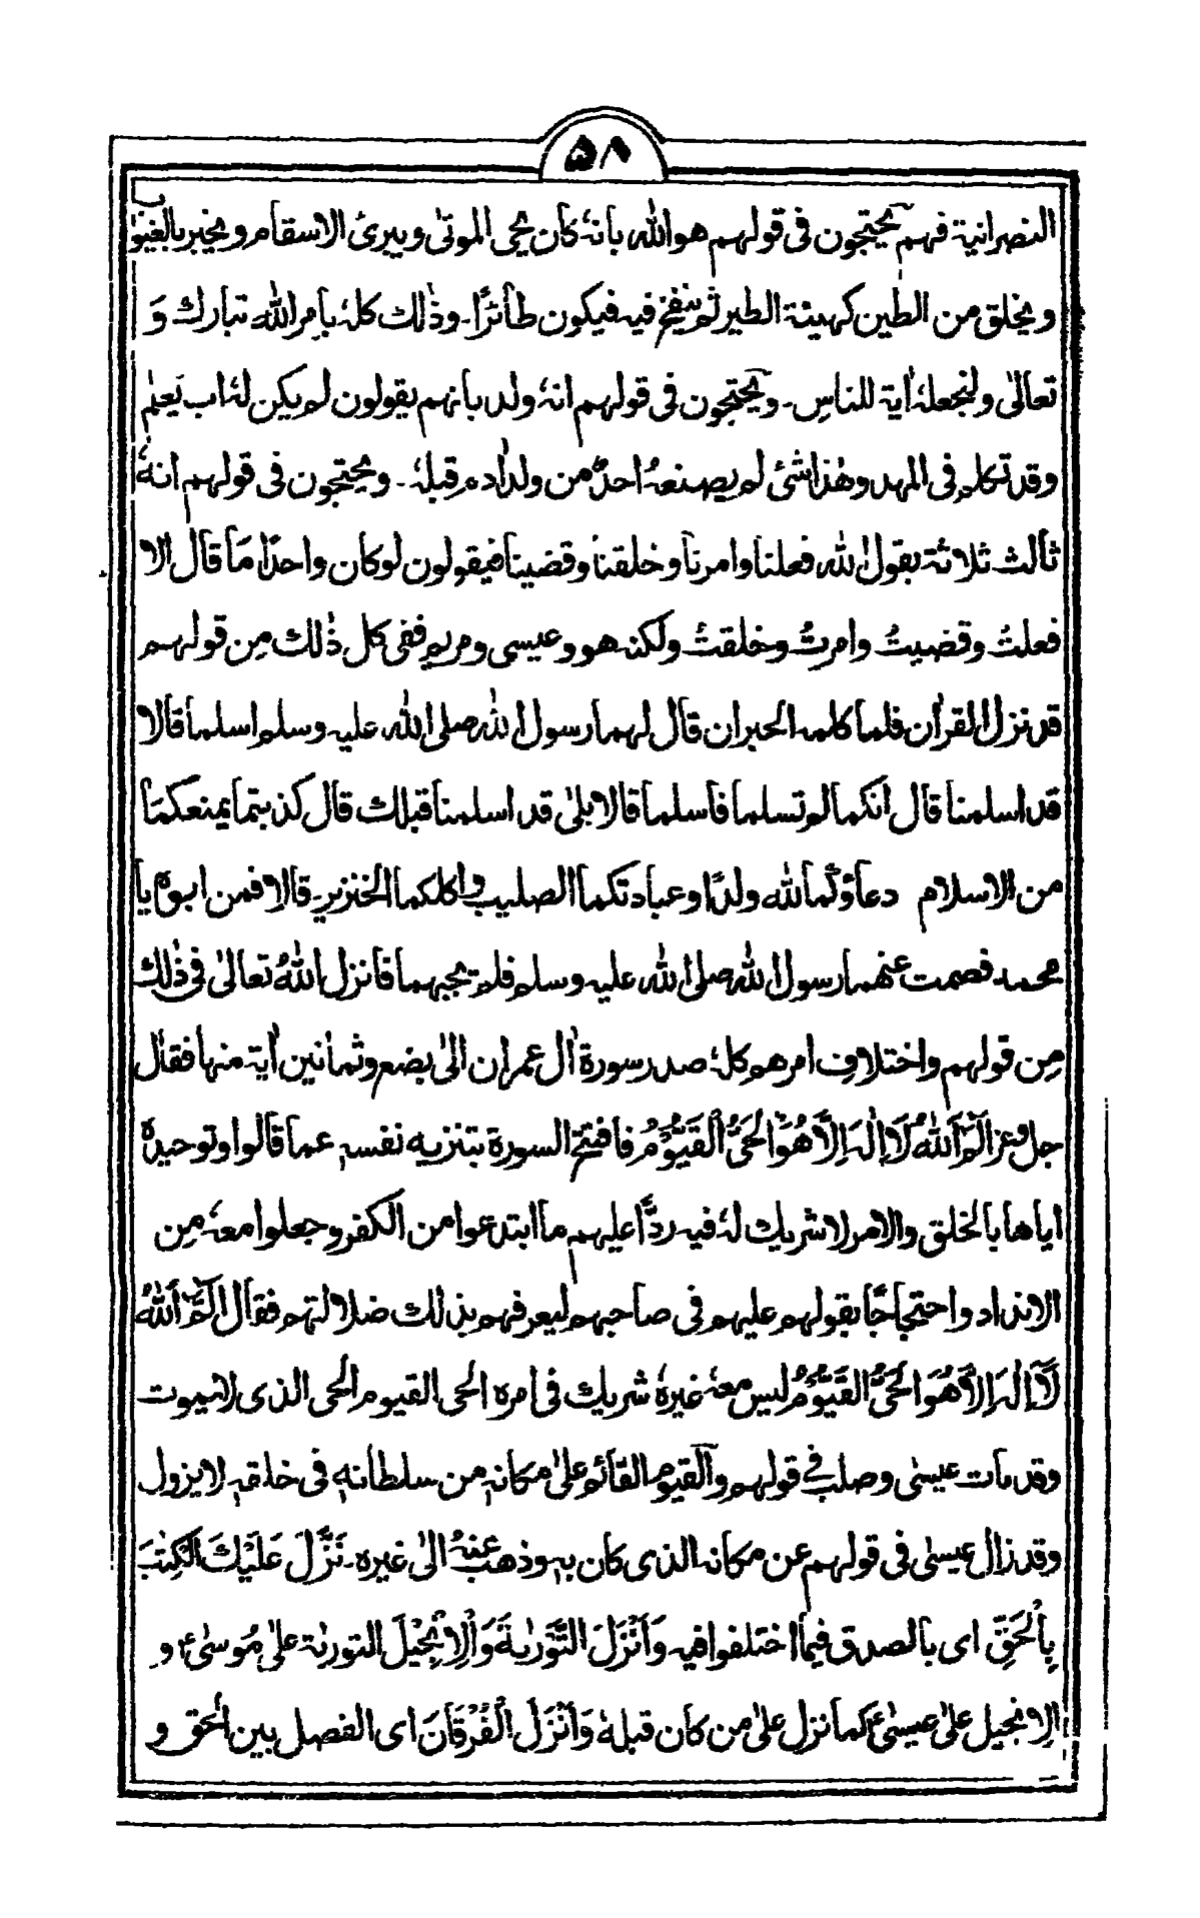 ۵۸
النصرانية فهم يحتجون فى قولهم هو الله بانهٗ كان يحى الموتىٰ ويبرئ الاسقام ويخبر بالغيوب
ويخلق من الطين كهيئة الطير ثم ينفخ فيه فيكون طائرًا۔ وذٰلك كلهٗ بامر الله تبارك وَ
تعالىٰ ولنجعلهٗ اٰية للناسِ۔ ويحتجون فى قولهم انهٗ ولد بانهم يقولون لم يكن لهٗ اب يَعلم
وقد تكلم فى المهد وهٰذا شئ لم يصنعهُ احدٌ من ولد اٰدم قبلهٗ۔ ويحتجون فى قولهم انهٗ
ثالث ثلاثة بقول الله فعلنا وامرنا وخلقنا وقضينا فيقولون لو كان واحدًا مَا قال الا
فعلتُ وقضيتُ وامرتُ وخلقتُ ولكنه هو وعيسى ومريم ففى كل ذٰلك مِن قولهم
قد نزل القراٰن فلما كلمه الحبران قال لهما رسول الله صلى الله عليه وسلم اسلما قالا
قد اسلمنا قال انكما لم تسلما فاسلما قالا بلىٰ قد اسلمنا قبلك قال كذبتما يمنعكمَا
من الاسلام دعاؤكما لله ولدًا وعبادتكما الصليب واكلكما الخنزير۔ قالا فمن ابوه يا
محمد فصمت عنهما رسول الله صلى الله عليه وسلم فلم يجبهما فانزل اللهُ تعالىٰ فى ذٰلك
مِن قولهم واختلافِ امرهم كلهٖ صدر سورة اٰل عمران الىٰ بضع وثمانين اٰية منها فقال
جل وعز الٓمٓ اَللهُ لَا اِلٰهَ اِلَّا هُوَ الْحَىُّ الْقَيُّوْمُ فافتتح السورة بتنزيه نفسهٖ عما قالوا وتوحيدهٖ
اياها بالخلق والامر لا شريك لهٗ فيه ردًّا عليهم ما ابتدعوا من الكفر وجعلوا معهٗ مِن
الانداد واحتجاجًا بقولهم عليهم فى صاحبهم ليعرفهم بذلك ضلالتهم فقال الٓمٓ اَللهُ
لَآ اِلٰهَ اِلَّا هُوَ الْحَىُّ الْقَيُّوْمُ ليس معهٗ غيرهٗ شريك فى امره الحى القيوم الحى الذى لا يموت
وقد مات عيسٰى وصلب فى قولهم والقيوم القائم علىٰ مكانهٖ من سلطانهٖ فى خلقهٖ لا يزول
وقد زال عيسىٰ فى قولهم عن مكانه الذى كان بهٖ وذهب عنهُ الىٰ غيره۔ نَزَّلَ عَلَيْكَ الْكِتٰبَ
بِالْحَقِّ اى بالصدق فيما اختلفوا فيه وَاَنْزَلَ التَّوْرٰىةَ وَالْاِنْجِيْلَ التورٰىة علىٰ مُوسىٰؑ و
الانجيل علىٰ عيسىٰؑ كما نزل علىٰ من كان قبلهٗ وَاَنْزَلَ الْفُرْقَانَ اى الفصل بين الحق و